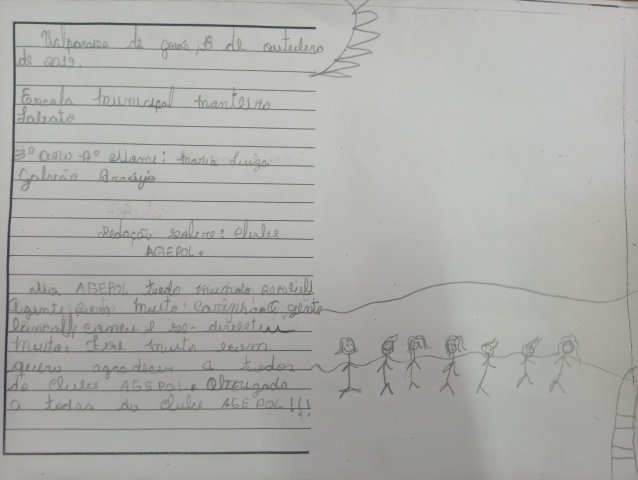 Valparaizo de goiás, 18 de outubro
de 2019.
Escola municipal monteiro
lobato
3º ano Aº Nome: maria Luiza
Galvão Araujo
Redação sobre: clube
AGEPOL.
AGEPOL todo mundo
agente com muito carinho a gente
comeu e se-divertiu
muito. foi muito
quero agradecer a todos
do clube AGEPOL. Obrigada
a todos do clube AGEPOL!!!